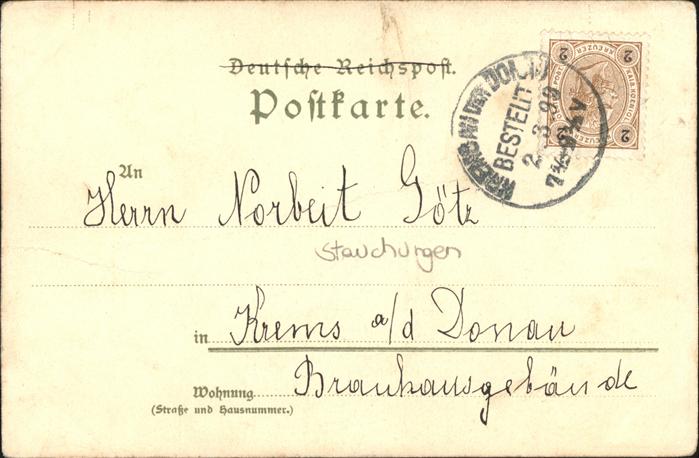 Deutsche Reichspost.
Postkarte.
KREMS AN DER DONAU
BESTELLT
2 3 99
2 KREUZER 2
2 2
An
Herrn Norbert Götz
Stauchungen
in Krems a/d Donau
Wohnung Brauhausgebäude
(Straße und Hausnummer.)